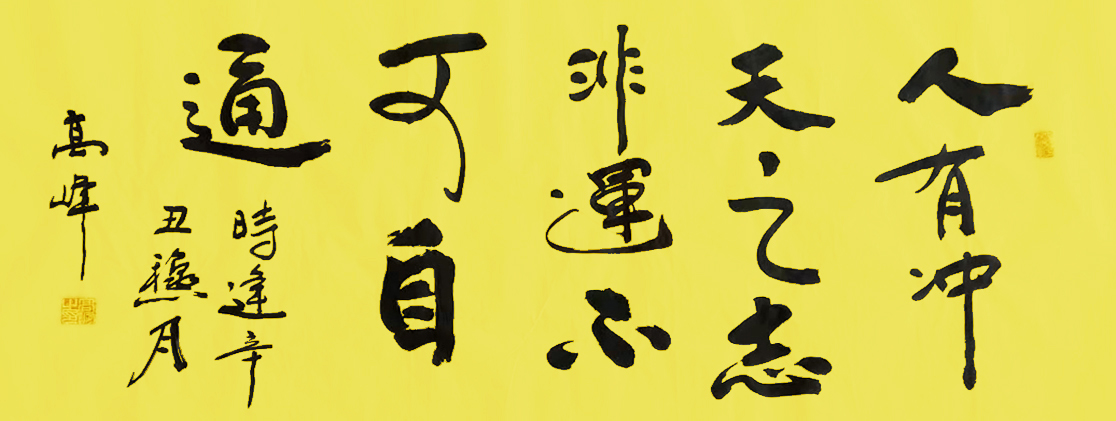 人有冲
天之志
非運不
可自
通
時逢辛
丑穐月
高峰